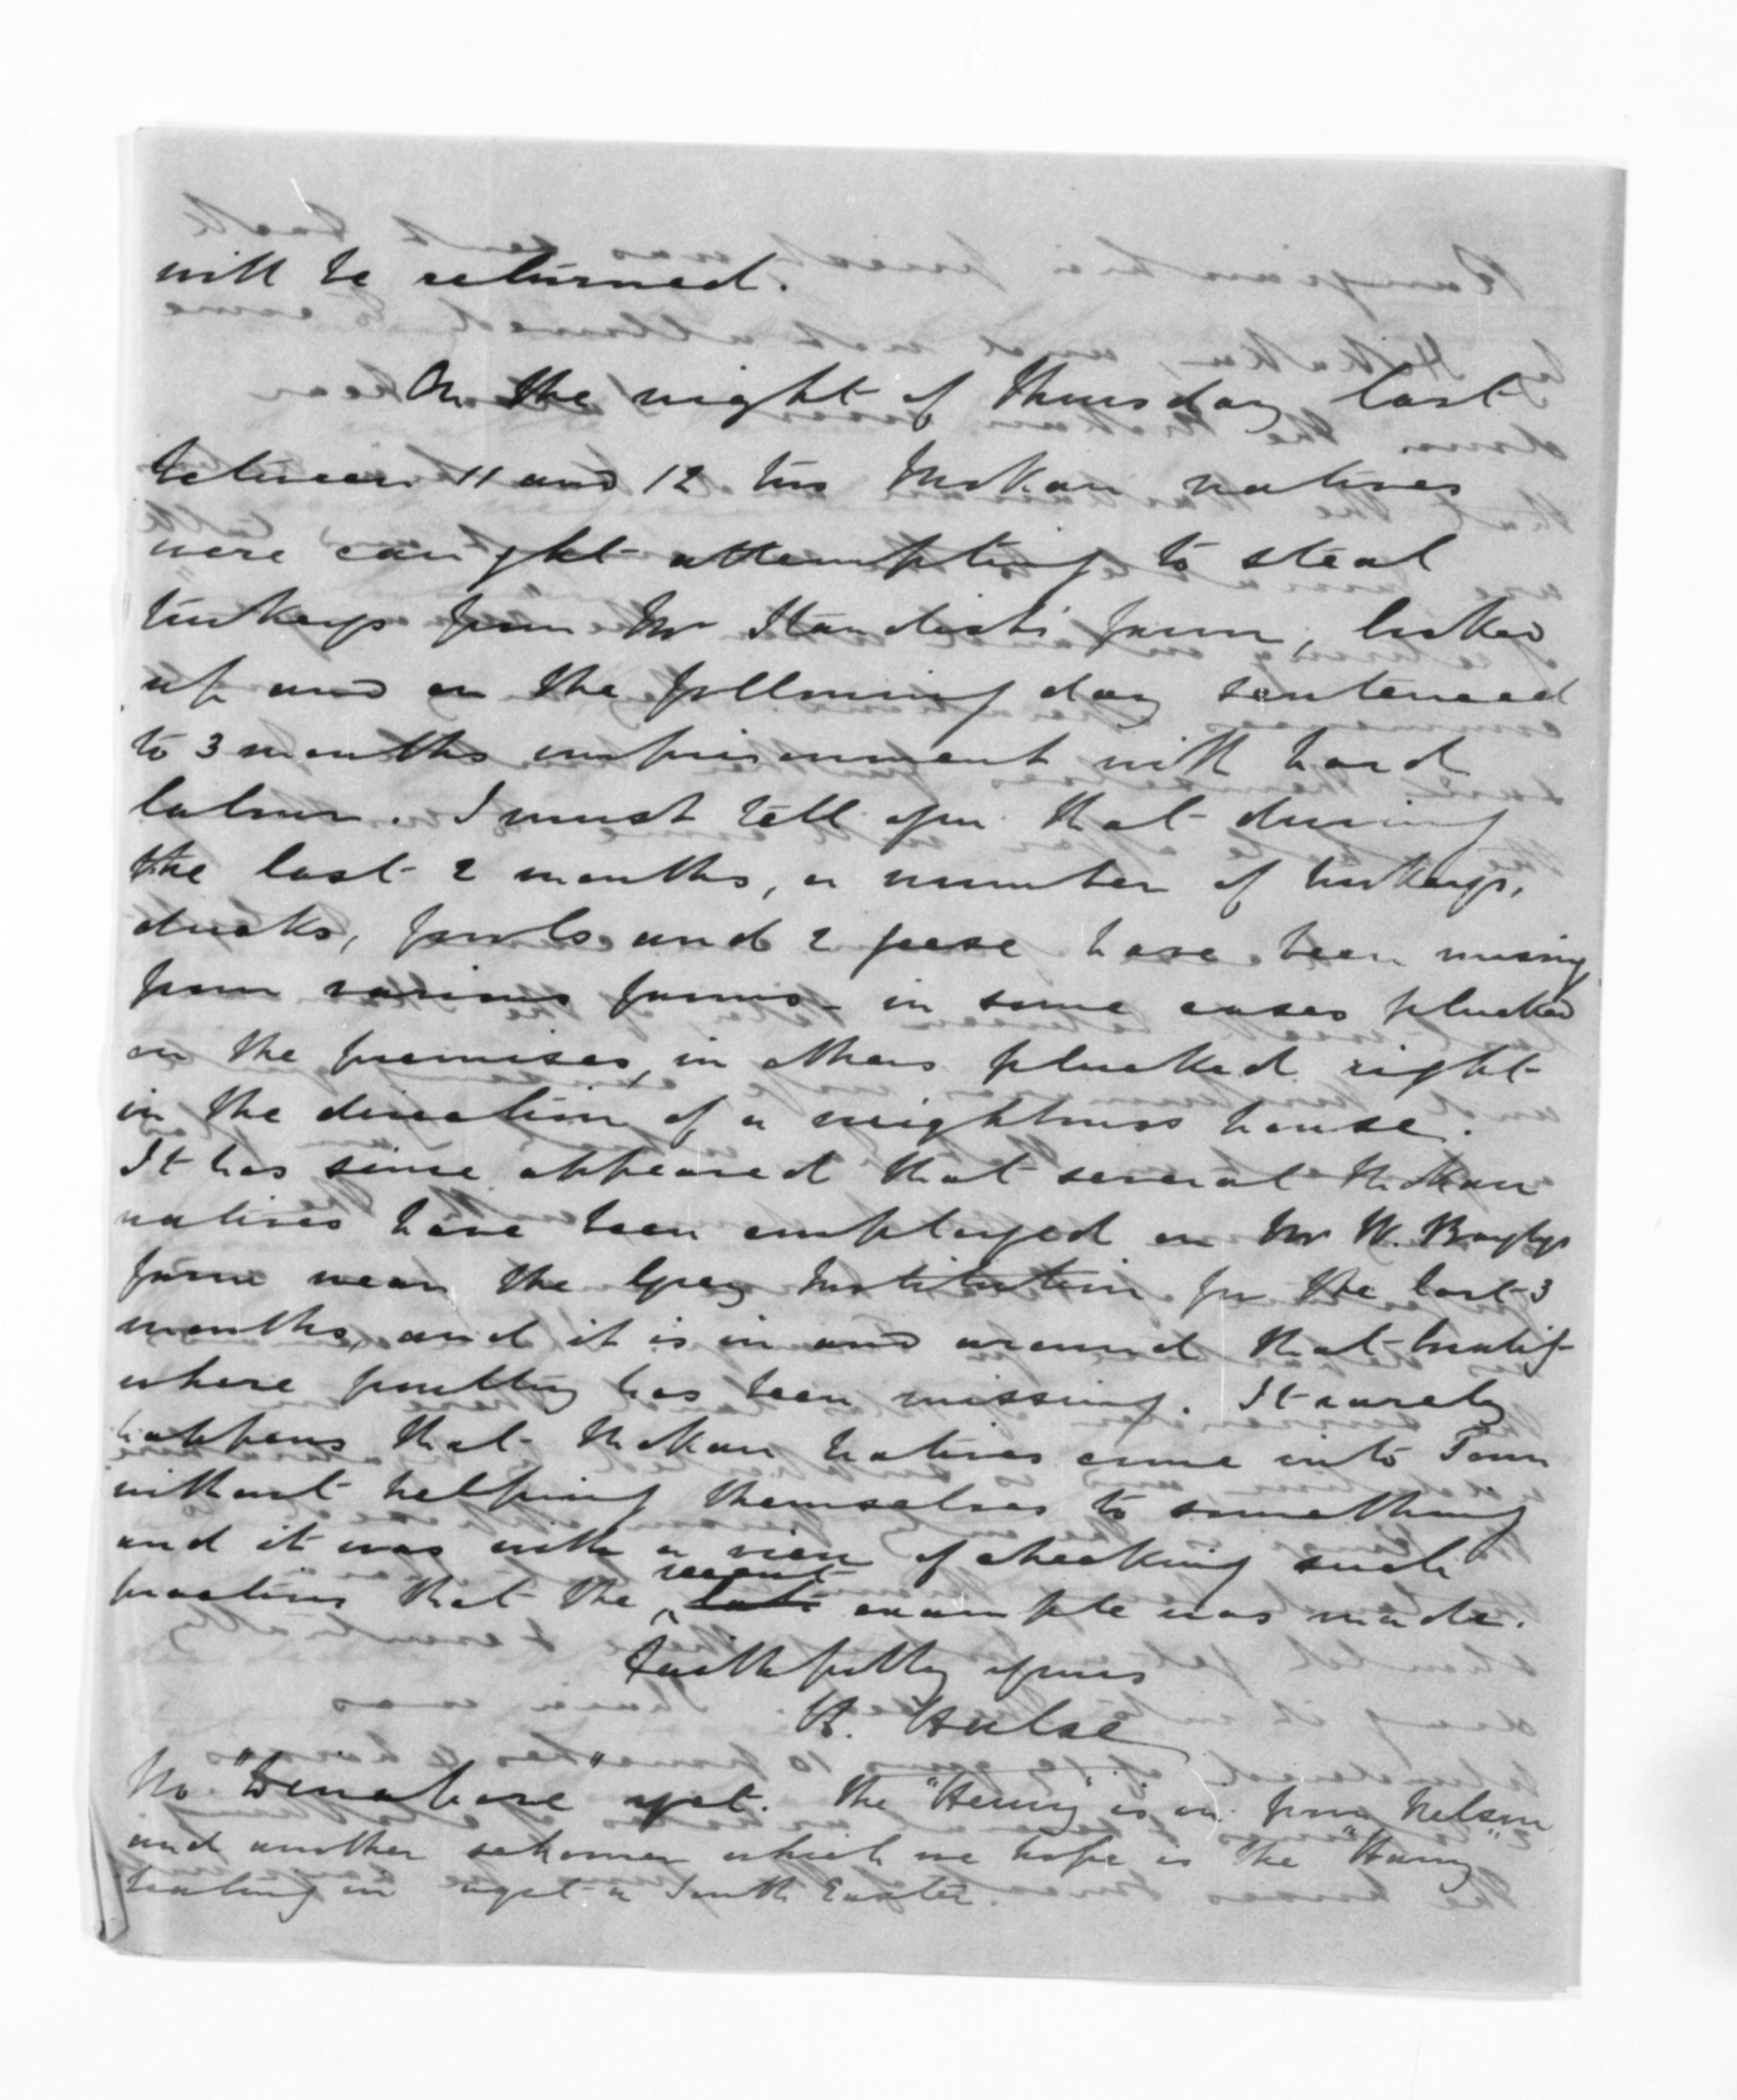 will be returned.
On the night of Thursday last
between 11 and 12 two Mokau natives
were caught attempting to steal
turkeys from Mr Standish's farm, locked
up and on the following day sentenced
to 3 months imprisonment with hard
labour. I must tell you that during
the last 2 months, a number of turkeys,
ducks, fowls and 2 geese have been missing
from various farms - in some cases plucked
on the premises, in others plucked right
in the direction of a neighbours house.
It has since appeared that several Mokau
natives have been employed on Mr W. Baylys
farm near the Grey Institution for the last 3
months, and it is in and around that locality
where poultry has been missing. It rarely
happens that Mokau natives come into Town
without helping themselves to something
and it was with a view of checking such
practices that the recent late example was made.
Faithfully yours
H. Hulse
No "Wonga" yet. The "Henry" is in from Nelson
and another schooner which we hope is the "Harry"
beating in agst a South Easter.